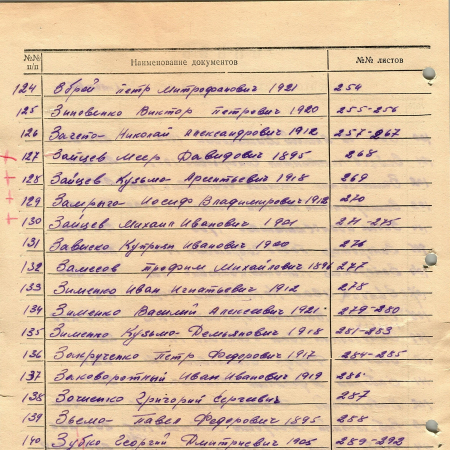 №№ п/п Наименование документов №№ листов
124 Зброй Петр Митрофанович 1921 254
125 Зиновенко Виктор Петрович 1920 255-256
126 Николай Александрович 1912 257-267
127 Зайцев Меер Давидович 1895 268
128 Зайцев Кузьма Арентьевич 1918 269
129 Иосиф Владимирович 1912 270
130 Зайцев Михаил Иванович 1901 271-275
131 Иванович 1900 276
132 Трофим Михайлович 1896 277
133 Зименко Иван Игнатьевич 1912 278
134 Зименко Василий Алексеевич 1921 279-280
135 Зименко Кузьма Демьянович 1918 281-283
136 Закрученко Петр Федорович 1917 284-285
137 Заковоротный Иван Иванович 1919 286
138 Григорий Сергеевич 287
139 Зьема Павел Федорович 1895 288
140 Зубко Георгий Дмитриевич 1905 289-293